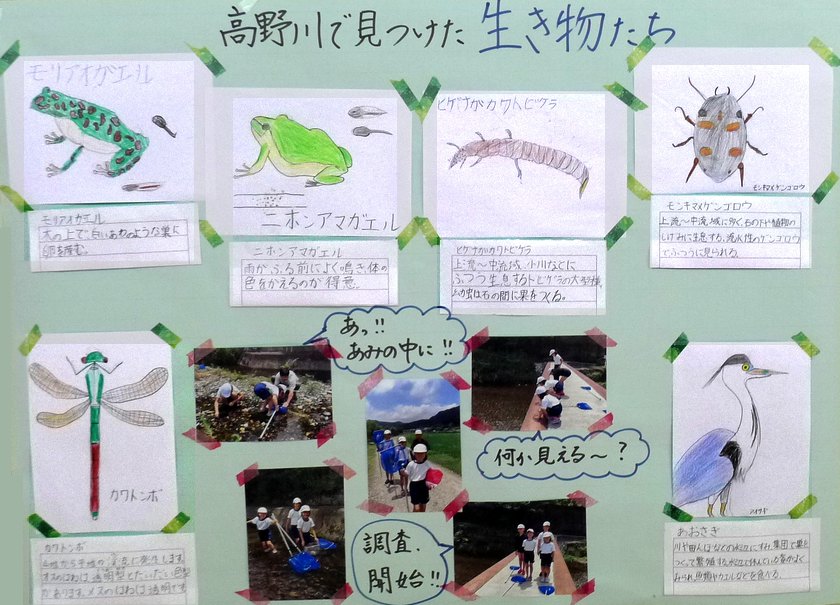 高野川で見つけた 生き物たち
モリアオガエル
ニホンアマガエル
ヒゲナガカワトビケラ
モンキマメゲンゴロウ
モリアオガエル
木の上で白いあわのような巣に
卵を産む。
ニホンアマガエル
雨がふる前によく鳴き、体の
色をかえるのが得意。
ヒゲナガカワトビケラ
上流〜中流域、小川などに
ふつう生息するトビケラの大型種
幼虫は石の間に巣をつくる。
モンキマメゲンゴロウ
上流〜中流域に多く、石の下や植物の
しげみに生息する。流水性のゲンゴロウ
でふつうに見られる。
あっ!!
あみの中に!!
何か見える〜?
調査、
開始!!
カワトンボ
アオサギ
カワトンボ
オスのはねは透明型とだいだい色型
があります。メスのはねは透明です
あおさぎ
川や田んぼなどの水辺にすみ、集団で巣を
つくって繁殖する。水辺で休んでいる姿がよく
みられ、魚類やカエルなどを食べる。